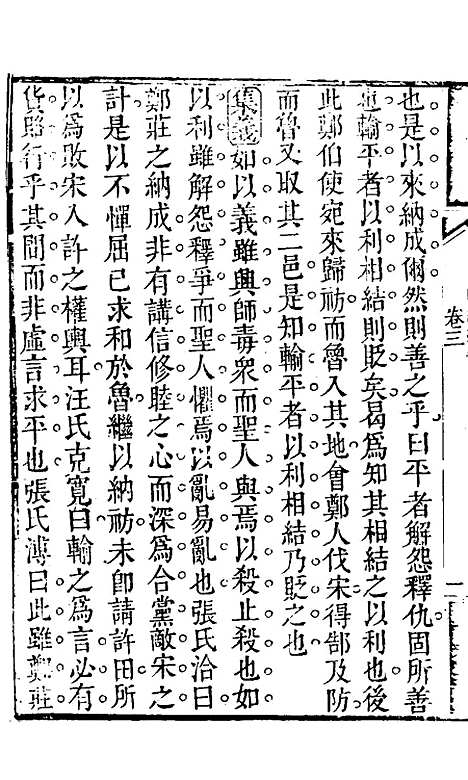 卷三
也是以來納成爾然則善之乎曰平者解怨釋仇固所善
也輸平者以利相結則貶矣曷爲知其相結之以利也後
此鄭伯使宛來歸祊而魯入其地會鄭人伐宋得郜及防
而魯又取其二邑是知輸平者以利相結乃貶之也
集義如以義雖興師毒衆而聖人與焉以殺止殺也如
以利雖解怨釋爭而聖人懼焉以亂易亂也張氏洽曰
鄭莊之納成非有講信修睦之心而深爲合黨敵宋之
計是以不憚屈己求和於魯繼以納祊未卽請許田所
以爲敗宋入許之權輿耳汪氏克寬曰輸之爲言必有
貨賂行乎其間而非虛言求平也張氏溥曰此雖鄭莊